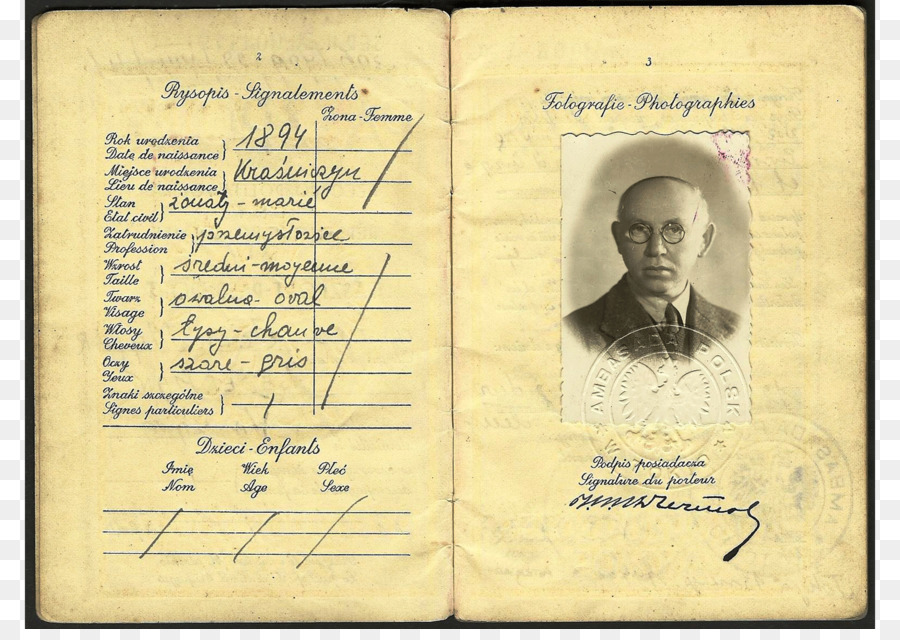 2
Rysopis - Signalements
Żona - Femme
Rok urodzenia
Date de naissance
1894
Miejsce urodzenia
Lieu de naissance
Stan
Etat civil
żonaty - marié
Zatrudnienie
Profession
przemysłowiec
Wzrost
Taille
średni - moyenne
Twarz
Visage
owalna - oval
Włosy
Cheveux
Łysy - chauve
Oczy
Yeux
szare - gris
Znaki szczególne
Signes particuliers
Dzieci - Enfants
Imię Wiek Płeć
Nom Age Sexe
3
Fotografie - Photographies
AMBASADA POLSKA
Podpis posiadacza
Signature du porteur